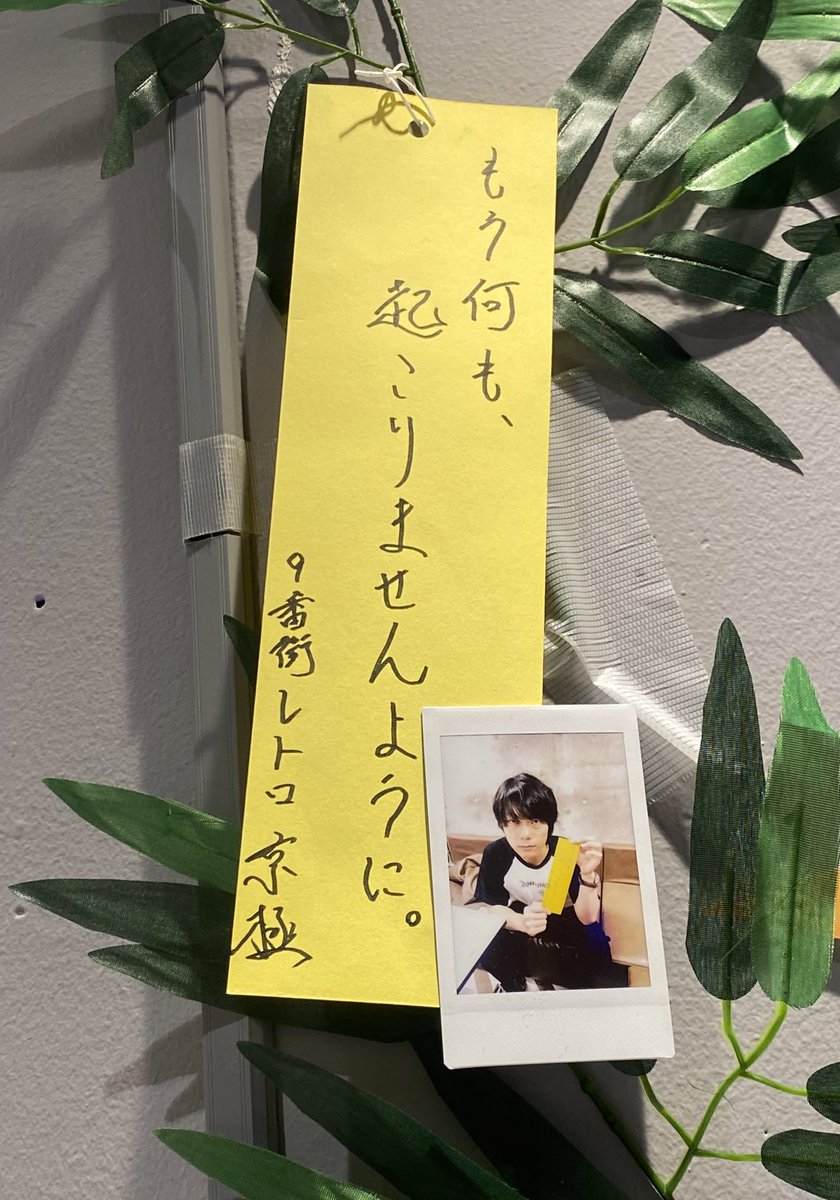 もう何も、
起こりませんように。
9番街レトロ 京極